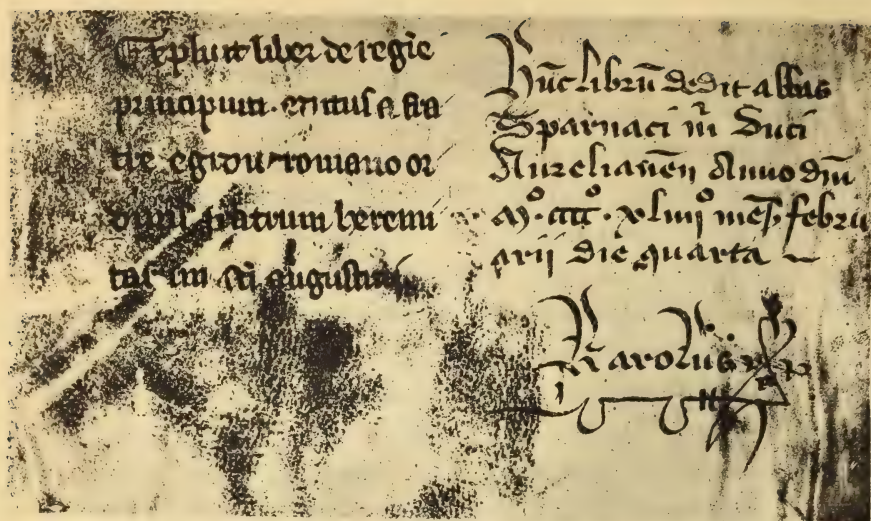 Explicit liber de regīe
principium. editus a fra
tre egidiu romano or
dinis fratrum heremi
tarum sci augustini
Hūc librū dedit abbas
Sparnaci m̄ Duci
Aurelianeñ Anno dm̄
Mº. ccccº. xliiijº meñ febru
arii die quarta
Karolus